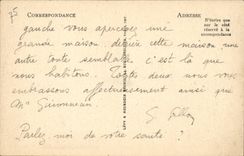 75
CORRESPONDANCE
ADRESSE
N'écrire que
sur le côté
réservé à la
correspondance
gauche vous apercevez une
grande maison derrière cette maison une
autre toute semblable c'est là que
nous habitons. Toutes deux nous vous
embrassons affectueusement ainsi que
Mr
Parlez moi de votre santé ?